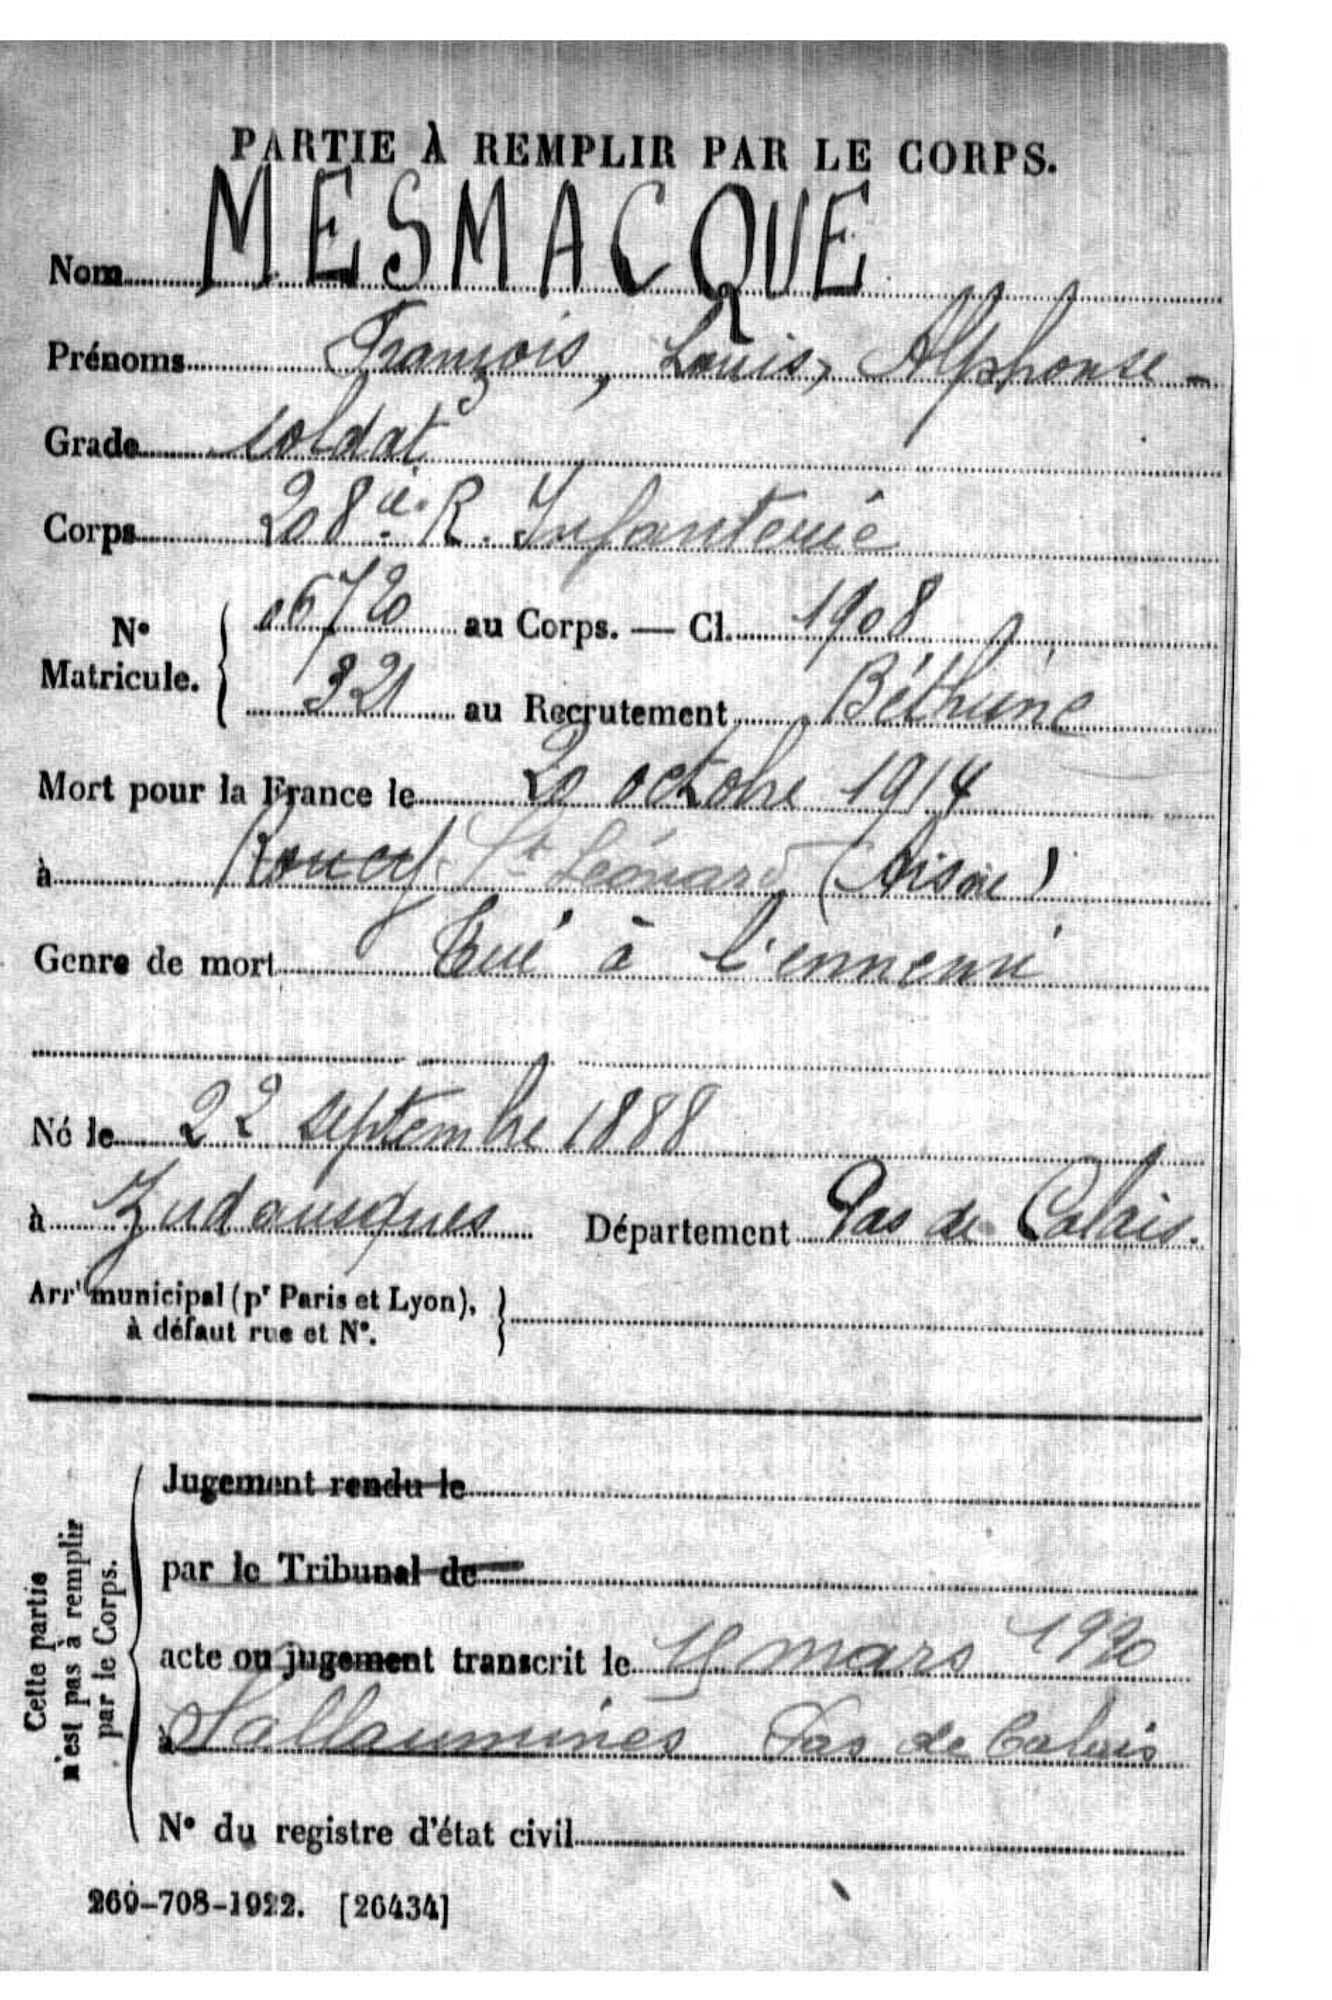 PARTIE À REMPLIR PAR LE CORPS.
Nom MESMACQUE
Prénoms François, Louis, Alphonse -
Grade soldat
Corps 208e. R. Infanterie
N° Matricule. { 06720 au Corps. — Cl. 1908
321 au Recrutement Béthune
Mort pour la France le 20 octobre 1914
à Roucy St Léonard (Aisne)
Genre de mort Tué à l'ennemi
Né le 22 septembre 1888
à Zudausques Département Pas de Calais.
Arrt municipal (pr Paris et Lyon), }
à défaut rue et N°.
Cette partie
n'est pas à remplir
par le Corps.
Jugement rendu le
par le Tribunal de
acte ou jugement transcrit le 15 mars 1920
à Sallaumines Pas de Calais
N° du registre d'état civil
269-708-1922. [26434]